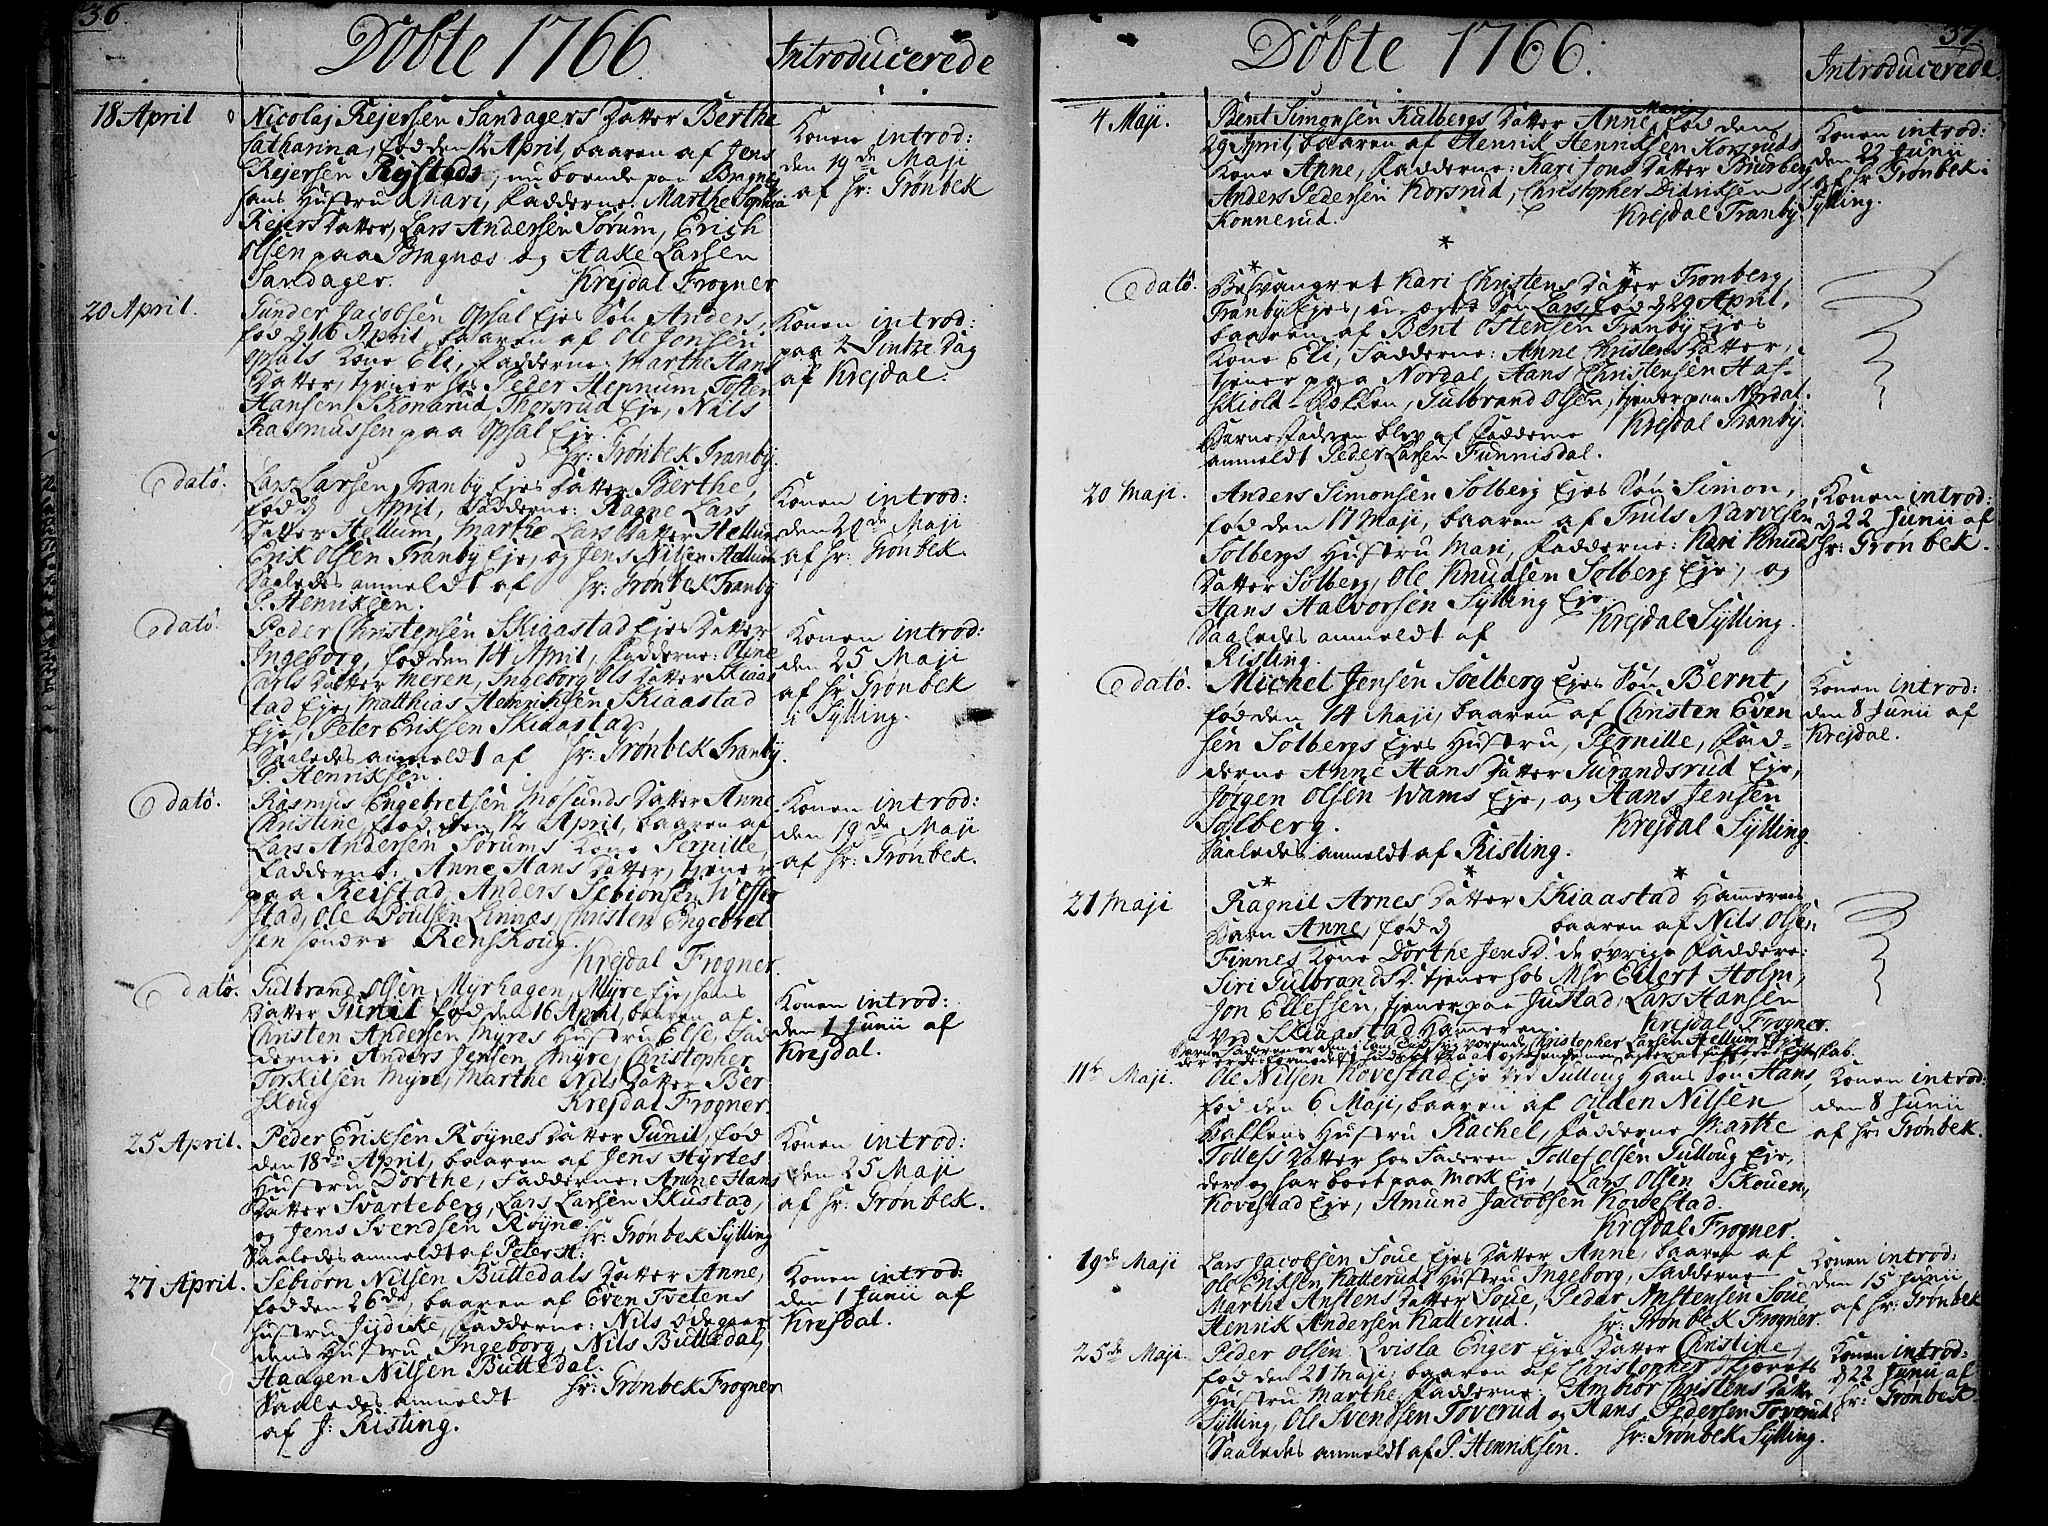 36.
Döbte 1766
Introducerede
18 April
Nicolaj Rejersen Sandagers Datter Berthe
Catharina, fød den 12 April, baaren af Jens
Rejersen Rejstads, nu boende paa Bragnes
hans Hustru Mari, Fadderne: Marthe Sophia
Rejers Datter, Lars Andersen Sørum, Erich
Olsen paa Bragnæs og Aake Larsen
Sandager. Krejdal Frogner
Konen introd:
den 19de Maji
af Hr: Grönbek
20 April.
Gunder Jacobsen Opsal Ejes Søn Anders,
fød d 16 April, baaren af Ole Jonsen
Opsals Kone Eli, Fadderne: Marthe Hans
Datter, tjener hos Peder Hennum, Tosten
Hansen Skonarud, Thorsrud Eje, Nils
Rasmussen paa Opsal Eje.
Hr: Grönbek Tranby.
Konen introd:
paa 2 Pintze Dag
af Krejdal.
dato.
Lars Larsen Tranby Ejes Datter Berthe,
fød d April, Fadderne: Ragne Lars
Datter Hellum, Marthe Lars Datter Hellum
Erik Olsen Tranby Eje, og Jens Nilsen Hellum
Saaledes anmeldt af Hr: Grönbek Tranby
P. Henriksen.
Konen introd:
den 20de Maji
af Hr: Grönbek.
dato.
Peder Christensen Skiaastad Ejes Datter
Ingeborg, fød den 14 April, Fadderne: Oline
Carls Datter Meren, Ingeborg Ols Datter Skiaas
tad Eje, Matthias Henriksen Skiaastad
Eje, Peter Eriksen Skiaastad.
Saaledes anmeldt af Hr: Grönbek Tranby.
P. Henriksen.
Konen introd:
den 25 Maji
af Hr Grönbek
i Sylling.
dato.
Rasmus Engebretsen Mosunds Datter Anne
Christine, fød den 12 April, baaren af
Lars Andersen Sørums Kone Pernille,
Fadderne: Anne Hans Datter, tjener
paa Reistad, Anders Sebionsen Weste
stad, Ole Poulsen Linnæs, Christen Engebret
sen søndre Renskoug.
Krejdal Frogner.
Konen introd:
den 19de Maji
af Hr: Grönbek.
dato.
Gulbrand Olsen Myrhagen, Myre Eje, hans
Datter Gunil fød den 16 April, baaren af
Christen Andersen Myres Hustru Else, Fad
derne: Anders Jensen Myre, Christopher
Torkilsen Myre, Marthe Nils Datter Ber
skoug Krejdal Frogner.
Konen introd:
den 1 Junii af
Krejdal.
25 April.
Peder Eriksen Røynes Datter Gunil, fød
den 18de April, baaren af Jens Hyrtes
Hustru Dorthe, Fadderne: Anne Hans
Datter Svarteberg, Lars Larsen Skustad,
og Jens Svendsen Røyne. Hr: Grönbek Sylling
Saaledes anmeldt af Peter H:
Konen introd:
den 25 Maji
af Hr: Grönbek.
27 April.
Sebiørn Nilsen Buttedals Datter Anne,
fød den 26de, baaren af Even Tvetens
Hustru Jydike, Fadderne: Nils Ødegaar
dens Hustru Ingeborg, Nils Buttedal,
Haagen Nilsen Buttedal.
Saaledes anmeldt Hr: Grönbek Frogner
af J: Risting.
Konen introd:
den 1 Junii af
Krejdal.
37.
Döbte 1766.
Introducerede
4 Maji.
Bent Simonsen Kulbergs Datter Anne Maria, fød den
29 April, baaren af Henrik Henriksen Korsruds
Kone Anne, Fadderne: Kari Jons Datter Buurberg
Anders Pedersen Korsrud, Christopher Didriksen
Konnerud. Krejdal Tranby
Konen introd:
den 22 Junii
af Hr: Grönbek i
Sylling.
dato.
Besvangret Kari Christens Datter Tronberg,
Tranby Ejes, u-ægte Søn Lars, fød d 29 April,
baaren af Bent Ostensen Tranby Ejes
Kone Eli, Fadderne: Anne Christens Datter,
tjener paa Nordal, Hans Christensen Has-
skiold-Bakken, Gulbrand Olsen, tjener paa Nordal.
Barne Faderen blev af Fadderne Krejdal Tranby.
anmeldt Peder Larsen Funnisdal.
20 Maji.
Anders Simonsen Solberg Ejes Søn Simon,
fød den 17 Maji, baaren af Truls Narvesen
Solbergs Hustru Mari, Fadderne: Kari Knuds
Datter Solberg, Ole Knudsen Solberg Eje, og
Hans Halvorsen Sylling Eje.
Saaledes anmeldt af Krejdal Sylling.
Risting.
Konen introd:
d 22 Junii af
Hr: Grönbek.
dato.
Michel Jensen Soelberg Ejes Søn Bernt,
fød den 14 Maji, baaren af Christen Even
sen Solbergs Ejes Hustru, Pernille, Fad-
derne Anne Hans Datter Gurandsrud Eje,
Jørgen Olsen Wams Eje, og Hans Jensen
Solberg. Krejdal Sylling.
Saaledes anmeldt af Risting.
Konen introd:
den 8 Junii af
Krejdal.
21 Maji
Ragnil Arnes Datter Skiaastad Hamerens
Barn Anne, fød d baaren af Nils Olsen
Finnes Kone Dorthe Jens D. de øvrige Faddere:
Siri Gulbrands D. tjener hos Mr Eilert Holm,
Jon Ellefsen, tjener paa Justad, Lars Hansen
ved Skiaastad Hameren. Krejdal Frogner.
Barne Faderen er den Christopher Larsen Hellum Eje
11te Maji.
Ole Nilsen Kovestad Eje ved Tulloug hans Søn Hans,
fød den 6 Maji, baaren af Oulden Nilsen
Bakkens Hustru Rachel, Fadderne Marthe
Tollefs Datter hos Faderen Tollef Olsen Tulloug Eje,
der og har boet paa Mork Eje, Lars Olsen Skouen,
Kovestad Eje, Amund Jacobsen Kovestad.
Krejdal Frogner.
Konen introd:
den 8 Junii
af Hr: Grönbek.
19de Maji
Lars Jacobsen Soue Ejes Datter Anne, baaren af
Ole Eriksen Katteruds Hustru Ingeborg, Fadderne
Marthe Anstens Datter Soue, Peder Anstensen Soue
Henrik Andersen Katterud. Hr: Grönbek Frogner.
Konen introd:
den 15 Junii
af Hr: Grönbek
25de Maji.
Peder Olsen Qvisla Enger Ejes Datter Christine,
fød den 21 Maji, baaren af Christopher Hjerets
Hustru Marthe, Fadderne: Ambior Christens Datter
Sylling, Ole Svendsen Toverud og Hans Pedersen Toverud.
Saaledes anmeldt af P. Henriksen. Hr: Grönbek Sylling.
Konen introd:
d 22 Junii af
Hr: Grönbek